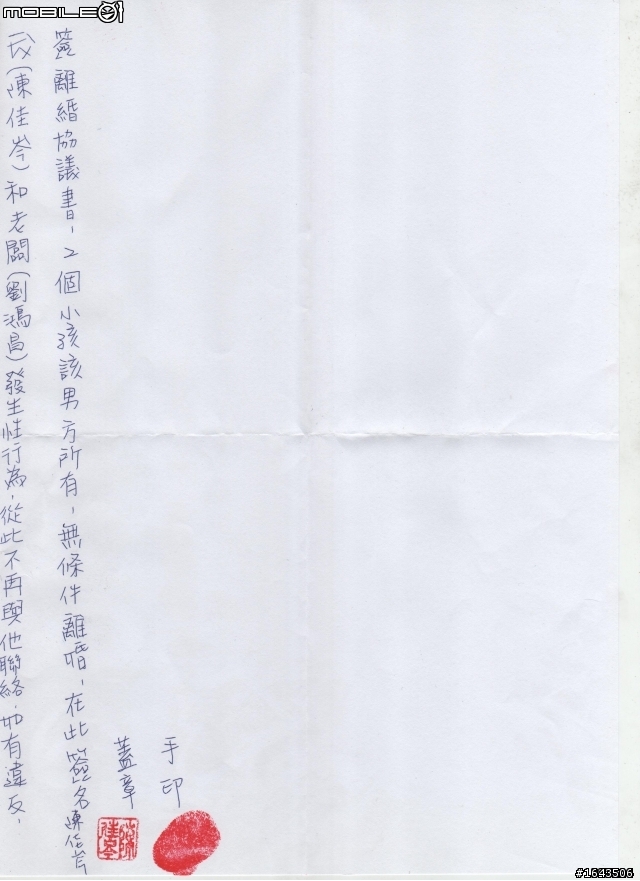 mobile01
我(陳佳岑)和老闆(劉鴻昌)發生性行為,從此不再與他聯絡,如有違反,
簽離婚協議書,2個小孩該男方所有,無條件離婚,在此簽名陳佳岑
蓋章
手印
陳佳岑
#1643506